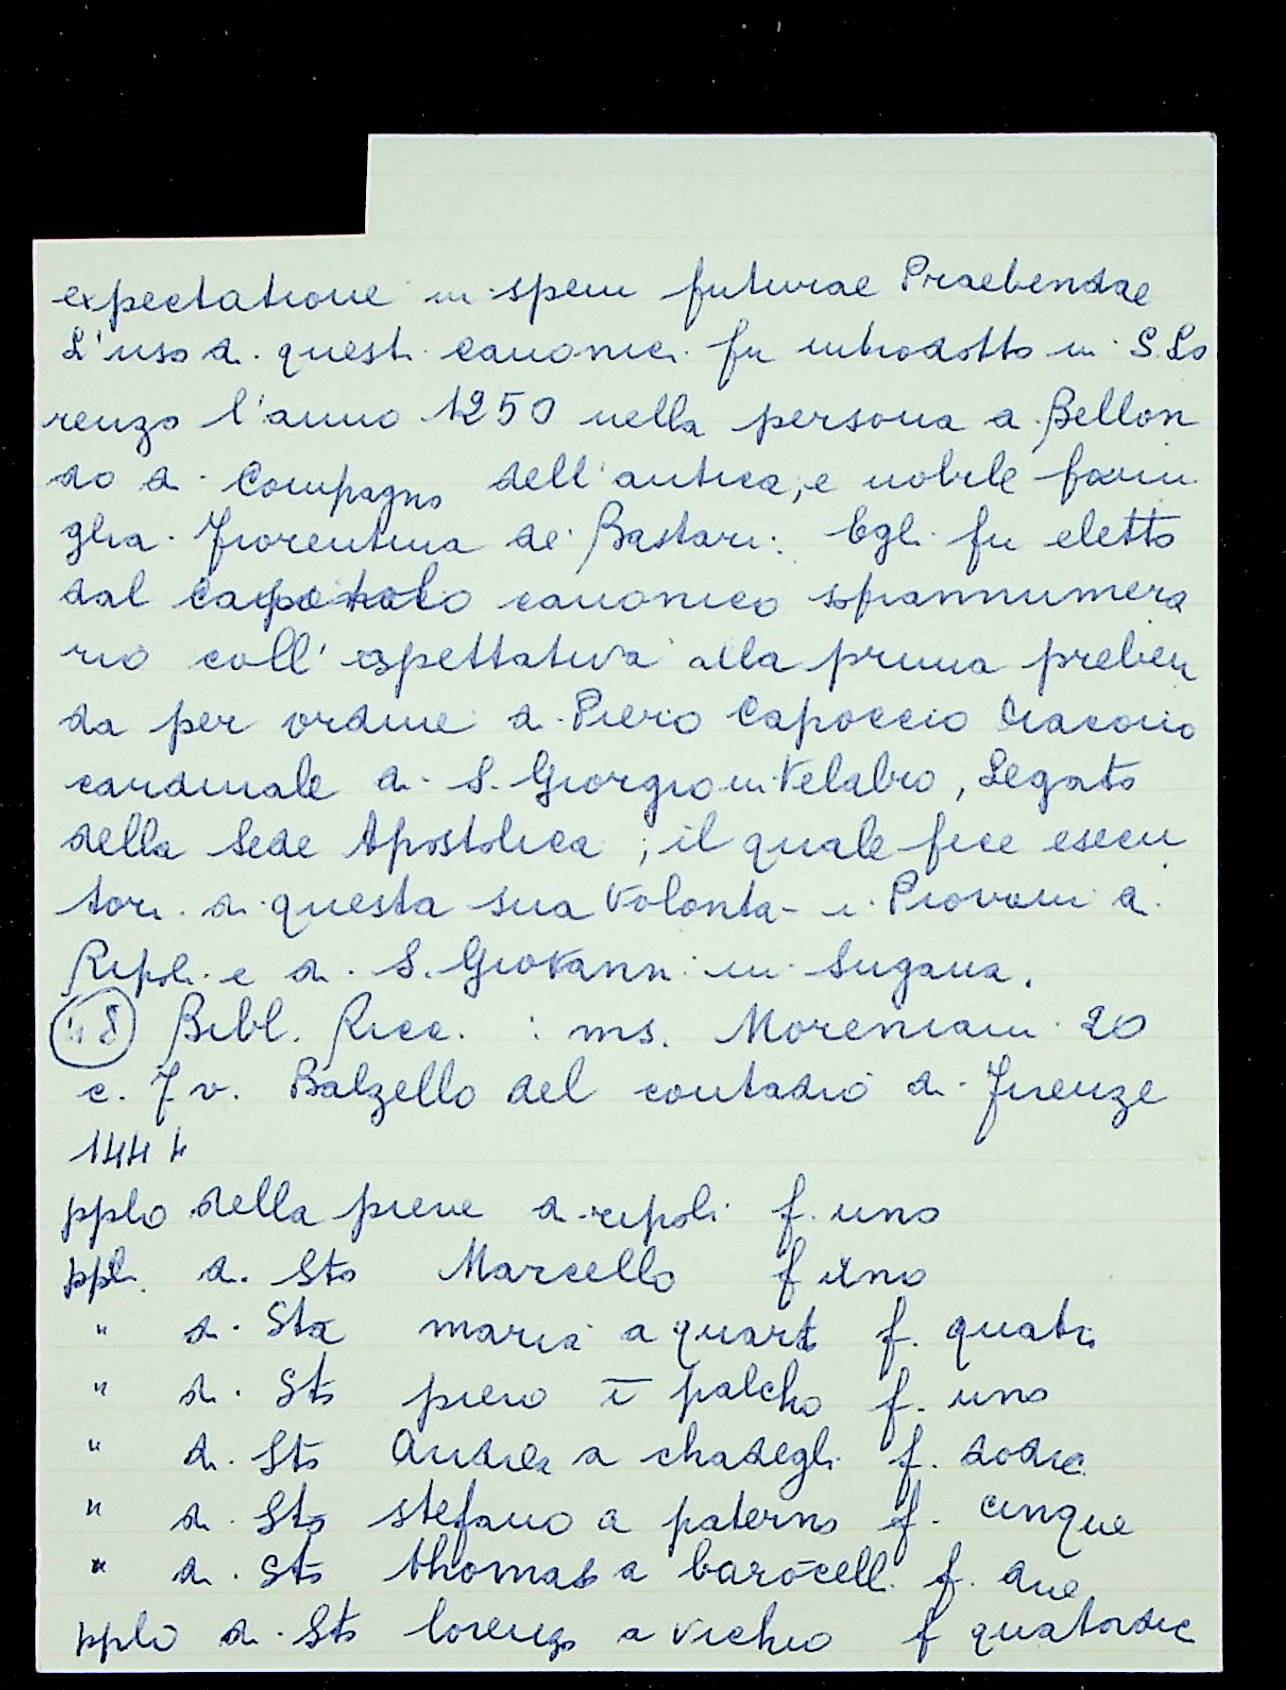 expectatione in spem futurae Praebendae
L'uso di questi canonici fu introdotto in S. Lo
renzo l'anno 1250 nella persona di Bellon
do di Compagno dell'antica, e nobile fami
glia Fiorentina de' Bastari. Egli fu eletto
dal capitolo canonico soprannumera
rio coll' aspettativa alla prima preben
da per ordine di Piero Capoccio Diacono
cardinale di S. Giorgio in Velabro, Legato
della Sede Apostolica ; il quale fece esecu
tori di questa sua volontà i Piovani di
Ripoli e di S. Giovanni in Sugana.
48 Bibl. Ricc. : ms. Moreniani 20
c. 7 v. Balzello del contado di Firenze
1444
pplo della pieve di ripoli f. uno
ppli. di Sto Marcello f uno
" di Sta maria a quarto f. quatro
" di Sto piero ī palcho f. uno
" di Sto Andrea a chadegli f. dodici
" di Sto stefano a paterno f. cinque
" di Sto thomaso a barōcelli f. due
pplo di Sto lorenzo a vichio f quatordici